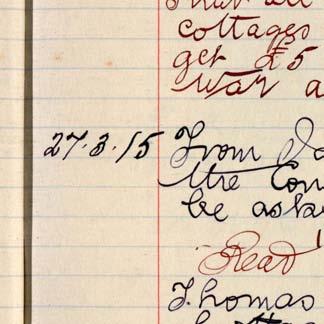 That all
cottages
get £5
war a
27.3.15 From
the Con
be aska
Read
Thomas